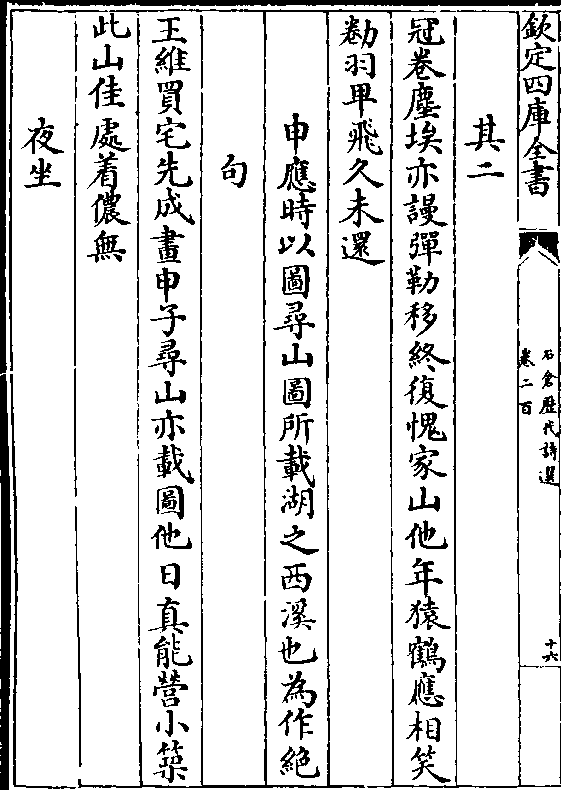 欽定四庫全書
石倉歷代詩選
卷二百
十六
其二
冠卷塵埃亦謾彈勒移終復愧家山他年猿鶴應相笑
勌羽甲飛久未還
申應時以圖尋山圖所載湖之西溪也為作絶
句
王維買宅先成畫申子尋山亦載圖他日真能營小築
此山佳處着儂無
夜坐